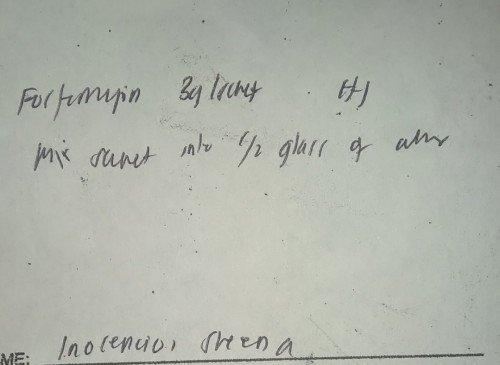 Fosfomycin 3g sachet #1
Mix sachet into 1/2 glass of water
ME: Inocencio, Sheena